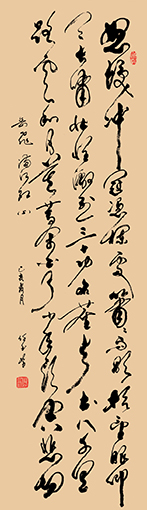 怒髮冲冠憑欄處瀟瀟雨歇抬望眼仰
天長嘯壯懷激烈三十功名塵與土八千里
路雲和月莫等閒白了少年頭空悲切
岳飛滿江紅
己亥